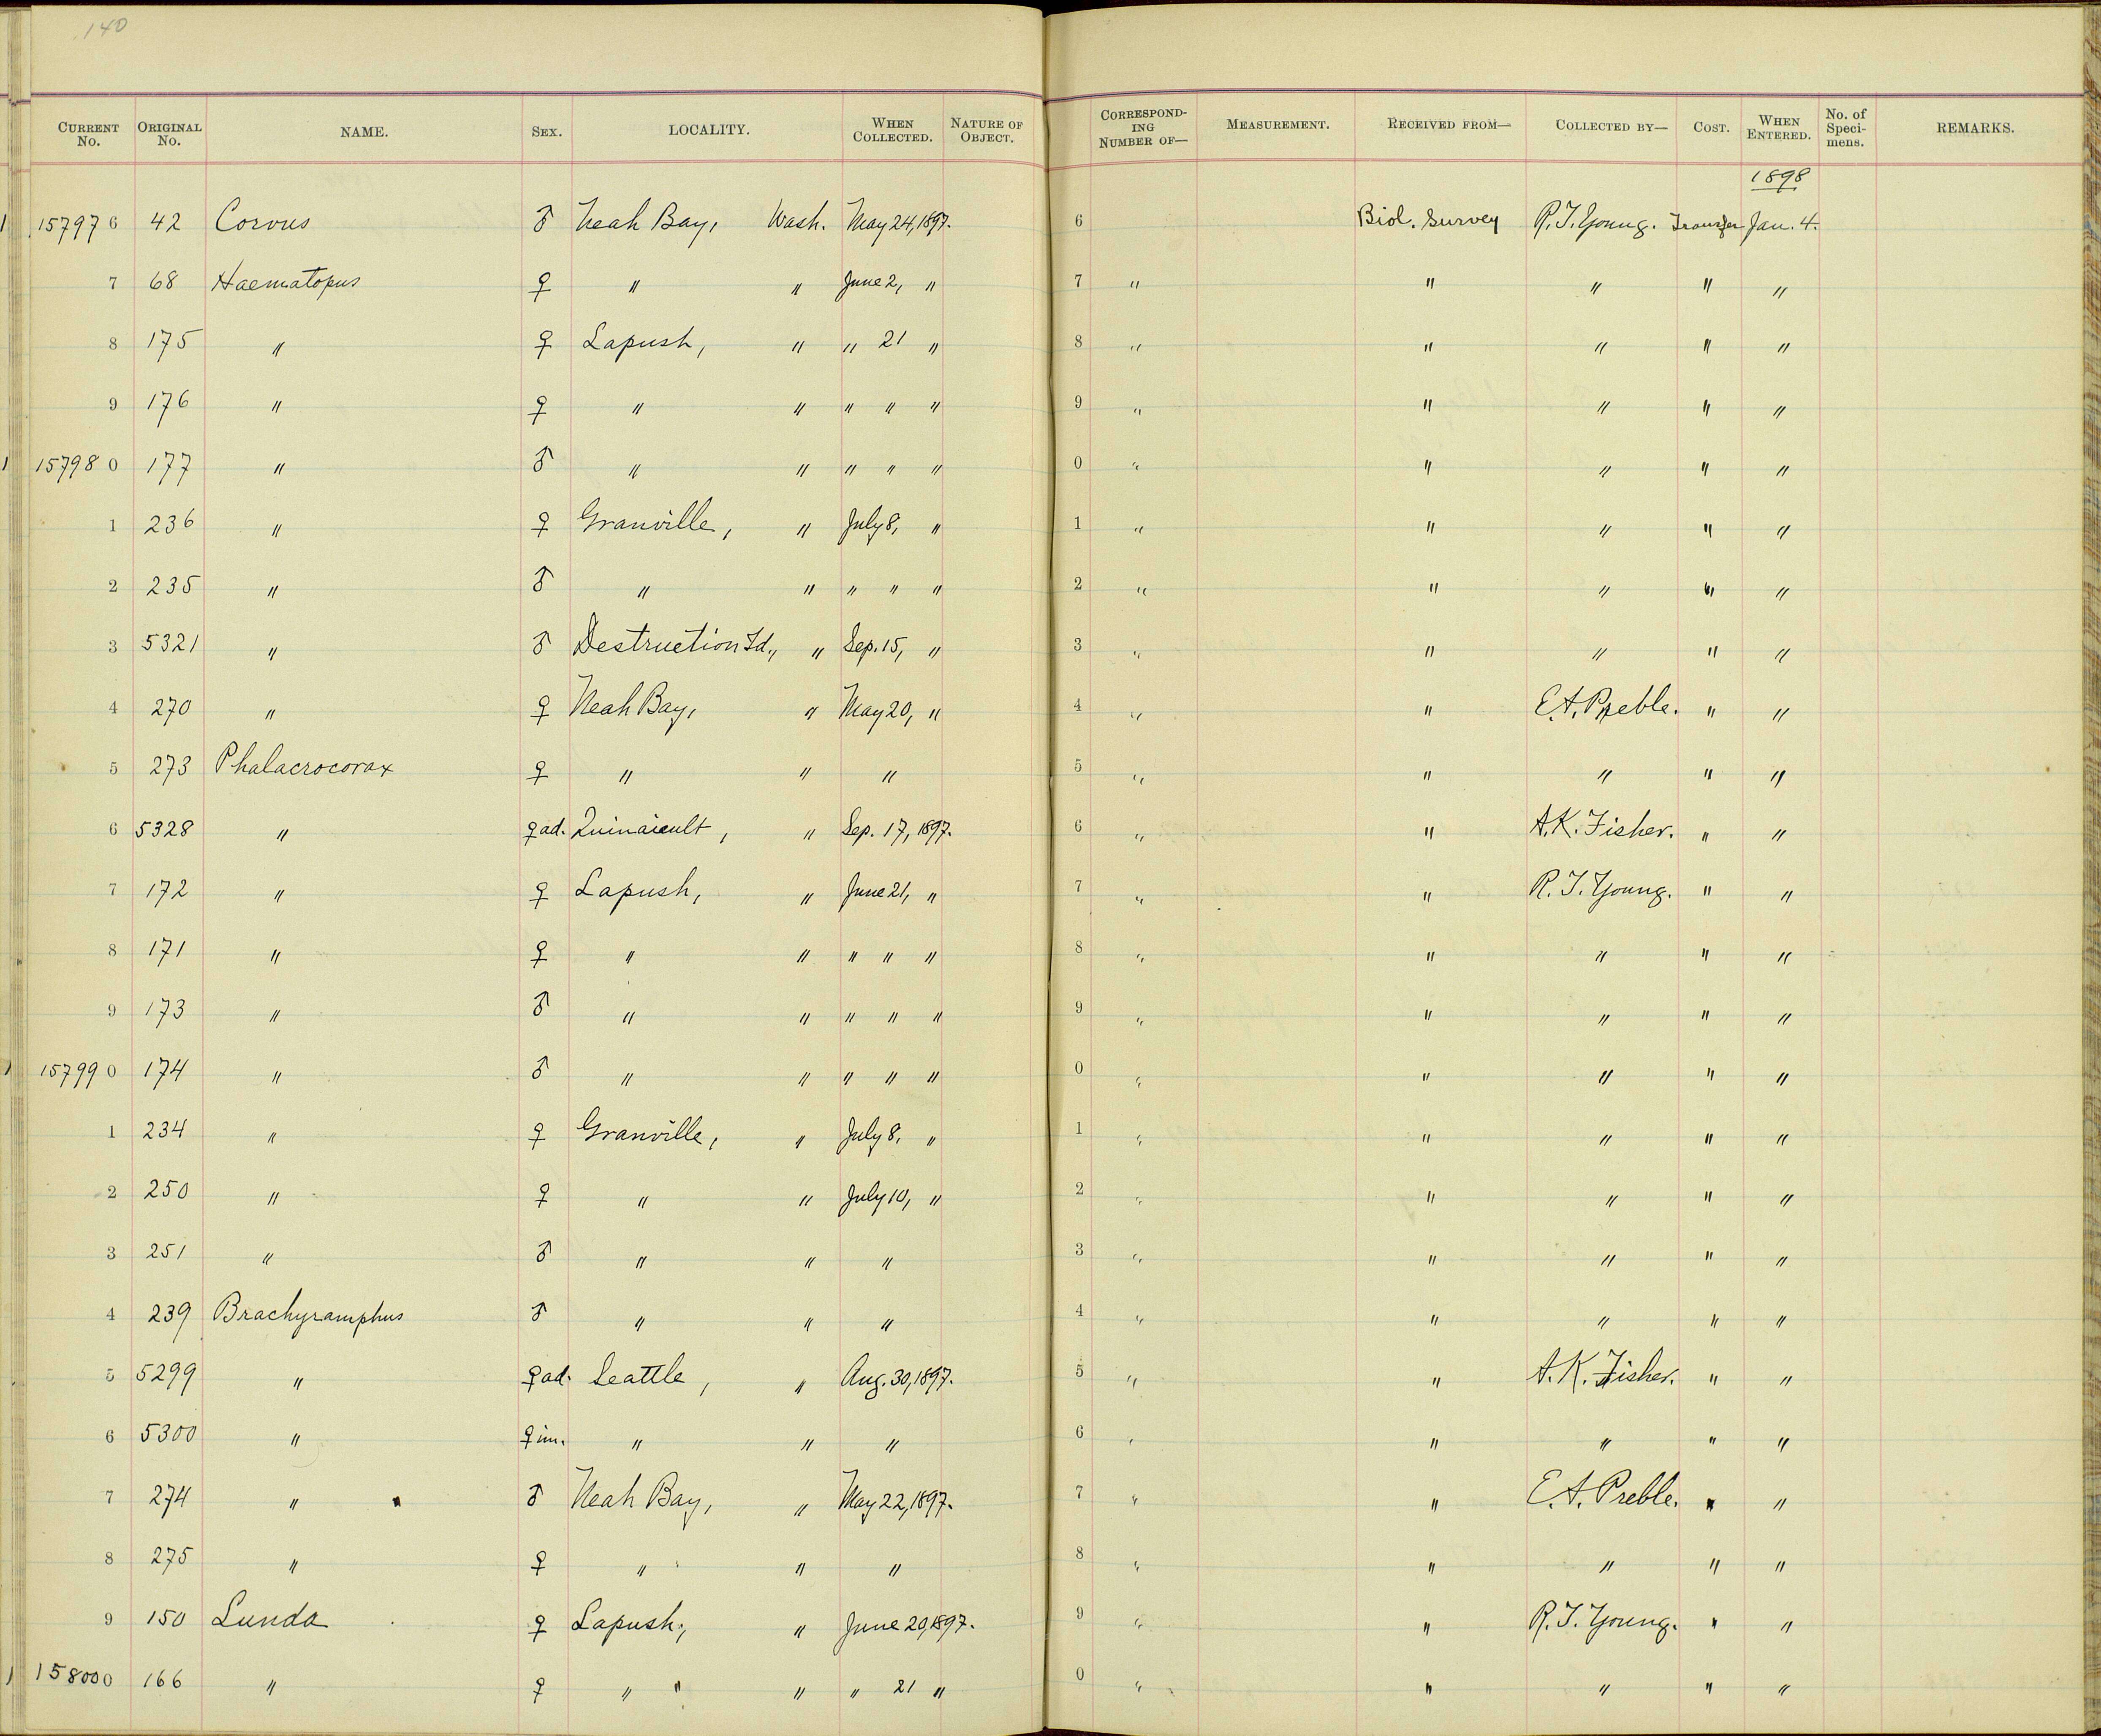 140
CURRENT No. ORIGINAL No. NAME. SEX. LOCALITY. WHEN COLLECTED. NATURE OF OBJECT. CORRESPONDING NUMBER OF— MEASUREMENT. RECEIVED FROM— COLLECTED BY— COST. WHEN ENTERED. No. of Specimens. REMARKS.
1898
15797 6 42 Corvus ♂ Neah Bay, Wash. May 24, 1897. 6 Biol. Survey R. T. Young. Transfer Jan. 4.
7 68 Haematopus ♀ " " June 2, " 7 " " " " "
8 175 " ♀ Lapush, " " 21 " 8 " " " " "
9 176 " ♀ " " " " " 9 " " " " "
15798 0 177 " ♂ " " " " " 0 " " " " "
1 236 " ♀ Granville, " July 8, " 1 " " " " "
2 235 " ♂ " " " " " 2 " " " " "
3 5321 " ♂ Destruction Id., " Sep. 15, " 3 " " " " "
4 270 " ♀ Neah Bay, " May 20, " 4 " " E. A. Preble. " "
5 273 Phalacrocorax ♀ " " " 5 " " " " "
6 5328 " ♀ ad. Quinaieult, " Sep. 17, 1897. 6 " " A. K. Fisher. " "
7 172 " ♀ Lapush, " June 21, " 7 " " R. T. Young. " "
8 171 " ♀ " " " " " 8 " " " " "
9 173 " ♂ " " " " " 9 " " " " "
15799 0 174 " ♂ " " " " " 0 " " " " "
1 234 " ♀ Granville, " July 8, " 1 " " " " "
2 250 " ♀ " " July 10, " 2 " " " " "
3 251 " ♂ " " " 3 " " " " "
4 239 Brachyramphus ♂ " " " 4 " " " " "
5 5299 " ♀ ad. Seattle, " Aug. 30, 1897. 5 " " A. K. Fisher. " "
6 5300 " ♀ im. " " " 6 " " " " "
7 274 " ♂ Neah Bay, " May 22, 1897. 7 " " E. A. Preble. " "
8 275 " ♀ " " " 8 " " " " "
9 150 Lunda ♀ Lapush, " June 20, 1897. 9 " " R. T. Young. " "
15800 0 166 " ♀ " " " " 21 " 0 " " " " "